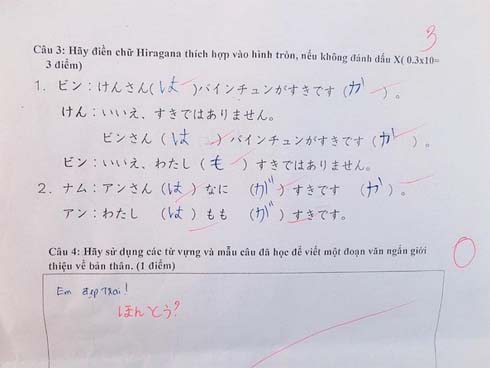 3
Câu 3: Hãy điền chữ Hiragana thích hợp vào hình tròn, nếu không đánh dấu X( 0.3x10=
3 điểm)
1. ビン：けんさん(は)バインチュンがすきです(か)。
けん：いいえ、すきではありません。
ビンさん(は)バインチュンがすきです(か)。
ビン：いいえ、わたし(も)すきではありません。
2. ナム：アンさん(は)なに(が)すきです(か)。
アン：わたし(は)もも(が)すきです。
Câu 4: Hãy sử dụng các từ vựng và mẫu câu đã học để viết một đoạn văn ngắn giới
thiệu về bản thân. (1 điểm)
0
Em đẹp trai!
ほんとう?